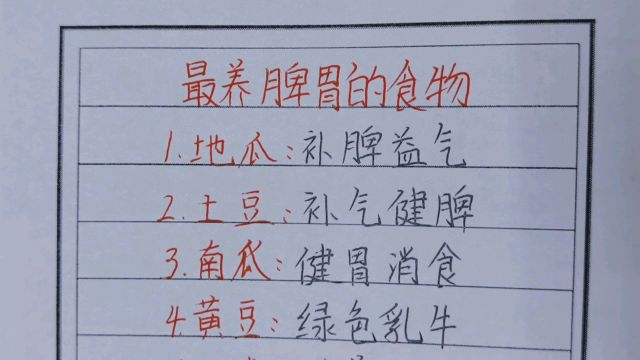 最养脾胃的食物
1.地瓜：补脾益气
2.土豆：补气健脾
3.南瓜：健胃消食
4.黄豆：绿色乳牛